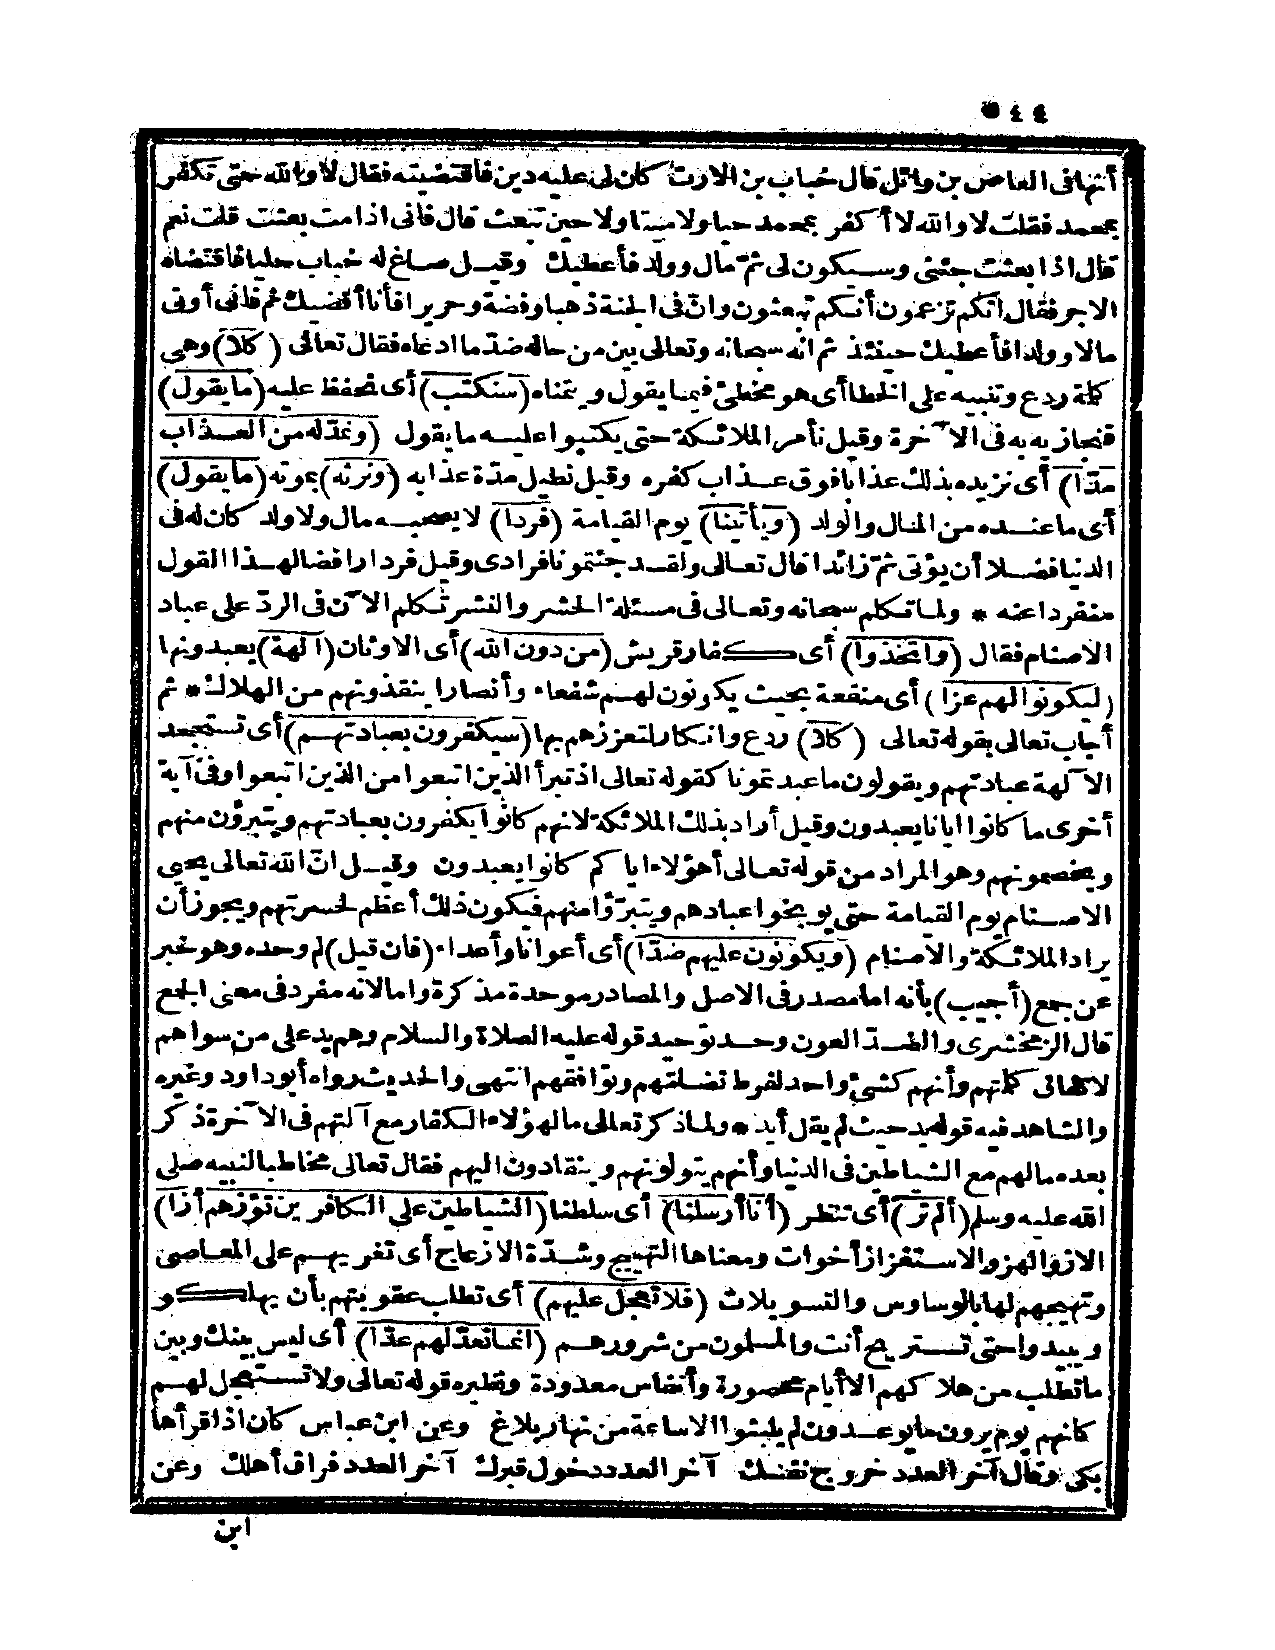 ٤٤٥
أنها فى العاص بن وائل قال خباب بن الارت كان لى عليه دين فاقتضيته فقال لا والله حتى تكفر
بمحمد فقلت لا والله لا أكفر بمحمد حيا ولا ميتا ولا حين تبعث قال فانى اذا مت بعثت قلت نعم
قال اذا بعثت جئنى وسيكون لى ثم مال وولد فأعطيك وقيل صاغ له خباب حليا فاقتضاه
الاجر فقال انكم تزعمون أنكم تبعثون وانّ فى الجنة ذهبا وفضة وحريرا فأنا أقضيك ثم فانى أوتى
مالا وولدا فأعطيك حينئذ ثم انه سبحانه وتعالى بين من حاله ضدّ ما ادعاه فقال تعالى (كلا) وهى
كلمة ردع وتنبيه على الخطا أى هو مخطئ فيما يقول ويتمناه (سنكتب) أى نحفظ عليه (ما يقول)
فنجازيه به فى الآخرة وقيل نأمر الملائكة حتى يكتبوا عليه ما يقول (ونمدّ له من العذاب
مدّا) أى نزيده بذلك عذابا فوق عذاب كفره وقيل نطيل مدّة عذابه (ونرثه) بموته (ما يقول)
أى ما عنده من المال والولد (ويأتينا) يوم القيامة (فردا) لا يصحبه مال ولا ولد كان له فى
الدنيا فضلا أن يؤتى ثمّ زائدا قال تعالى ولقد جئتمونا فرادى وقيل فردا رافضا لهذا القول
منفردا عنه * ولما تكلم سبحانه وتعالى فى مسئلة الحشر والنشر تكلم الآن فى الردّ على عباد
الاصنام فقال (واتخذوا) أى كفار قريش (من دون الله) أى الاوثان (آلهة) يعبدونها
(ليكونوا لهم عزا) أى منفعة بحيث يكونون لهم شفعاء وأنصارا ينقذونهم من الهلاك * ثم
أجاب تعالى بقوله تعالى (كلا) ردع وانكار لتعززهم بها (سيكفرون بعبادتهم) أى تستجحد
الآلهة عبادتهم ويقولون ما عبدتمونا كقوله تعالى اذ تبرأ الذين اتبعوا من الذين اتبعوا وفى آية
أخرى ما كانوا ايانا يعبدون وقيل أراد بذلك الملائكة لانهم كانوا يكفرون بعبادتهم ويتبرؤن منهم
ويخصمونهم وهو المراد من قوله تعالى أهؤلاء اياكم كانوا يعبدون وقيل انّ الله تعالى يحيى
الاصنام يوم القيامة حتى يوبخوا عبادهم ويتبرّؤا منهم فيكون ذلك أعظم لحسرتهم ويجوز أن
يراد الملائكة والاصنام (ويكونون عليهم ضدّا) أى أعوانا وأعداء (فان قيل) لم وحده وهو خبر
عن جمع (أجيب) بأنه اما مصدر فى الاصل والمصادر موحدة مذكرة واما لانه مفرد فى معنى الجمع
قال الزمخشرى والضدّ العون وحد توحيد قوله عليه الصلاة والسلام وهم يد على من سواهم
لاتفاق كلمتهم وأنهم كشئ واحد لفرط تضامّهم وتوافقهم انتهى والحديث رواه أبو داود وغيره
والشاهد فيه قوله يد حيث لم يقل أيد * ولما ذكر تعالى ما لهؤلاء الكفار مع آلهتهم فى الآخرة ذكر
بعده مالهم مع الشياطين فى الدنيا وأنهم يتولونهم وينقادون اليهم فقال تعالى مخاطبا لنبيه صلى
الله عليه وسلم (ألم تر) أى تنظر (أنا أرسلنا) أى سلطنا (الشياطين على الكافرين تؤزهم أزا)
الازوالهز والاستفزاز أخوات ومعناها التهييج وشدّة الازعاج أى تغريهم على المعاصى
وتهيجهم لها بالوساوس والتسويلات (فلا تعجل عليهم) أى تطلب عقوبتهم بأن يهلكوا
ويبيدوا حتى تستريح أنت والمسلمون من شرورهم (انما نعدّ لهم عدّا) أى ليس بينك وبين
ما تطلب من هلاكهم الا أيام محصورة وأنفاس معدودة ونظيره قوله تعالى ولا تستعجل لهم
كانهم يوم يرون ما يوعدون لم يلبثوا الا ساعة من نهار بلاغ وعن ابن عباس كان اذا قرأها
بكى وقال آخر العدد خروج نفسك آخر العدد دخول قبرك آخر العدد فراق أهلك وعن
ابن